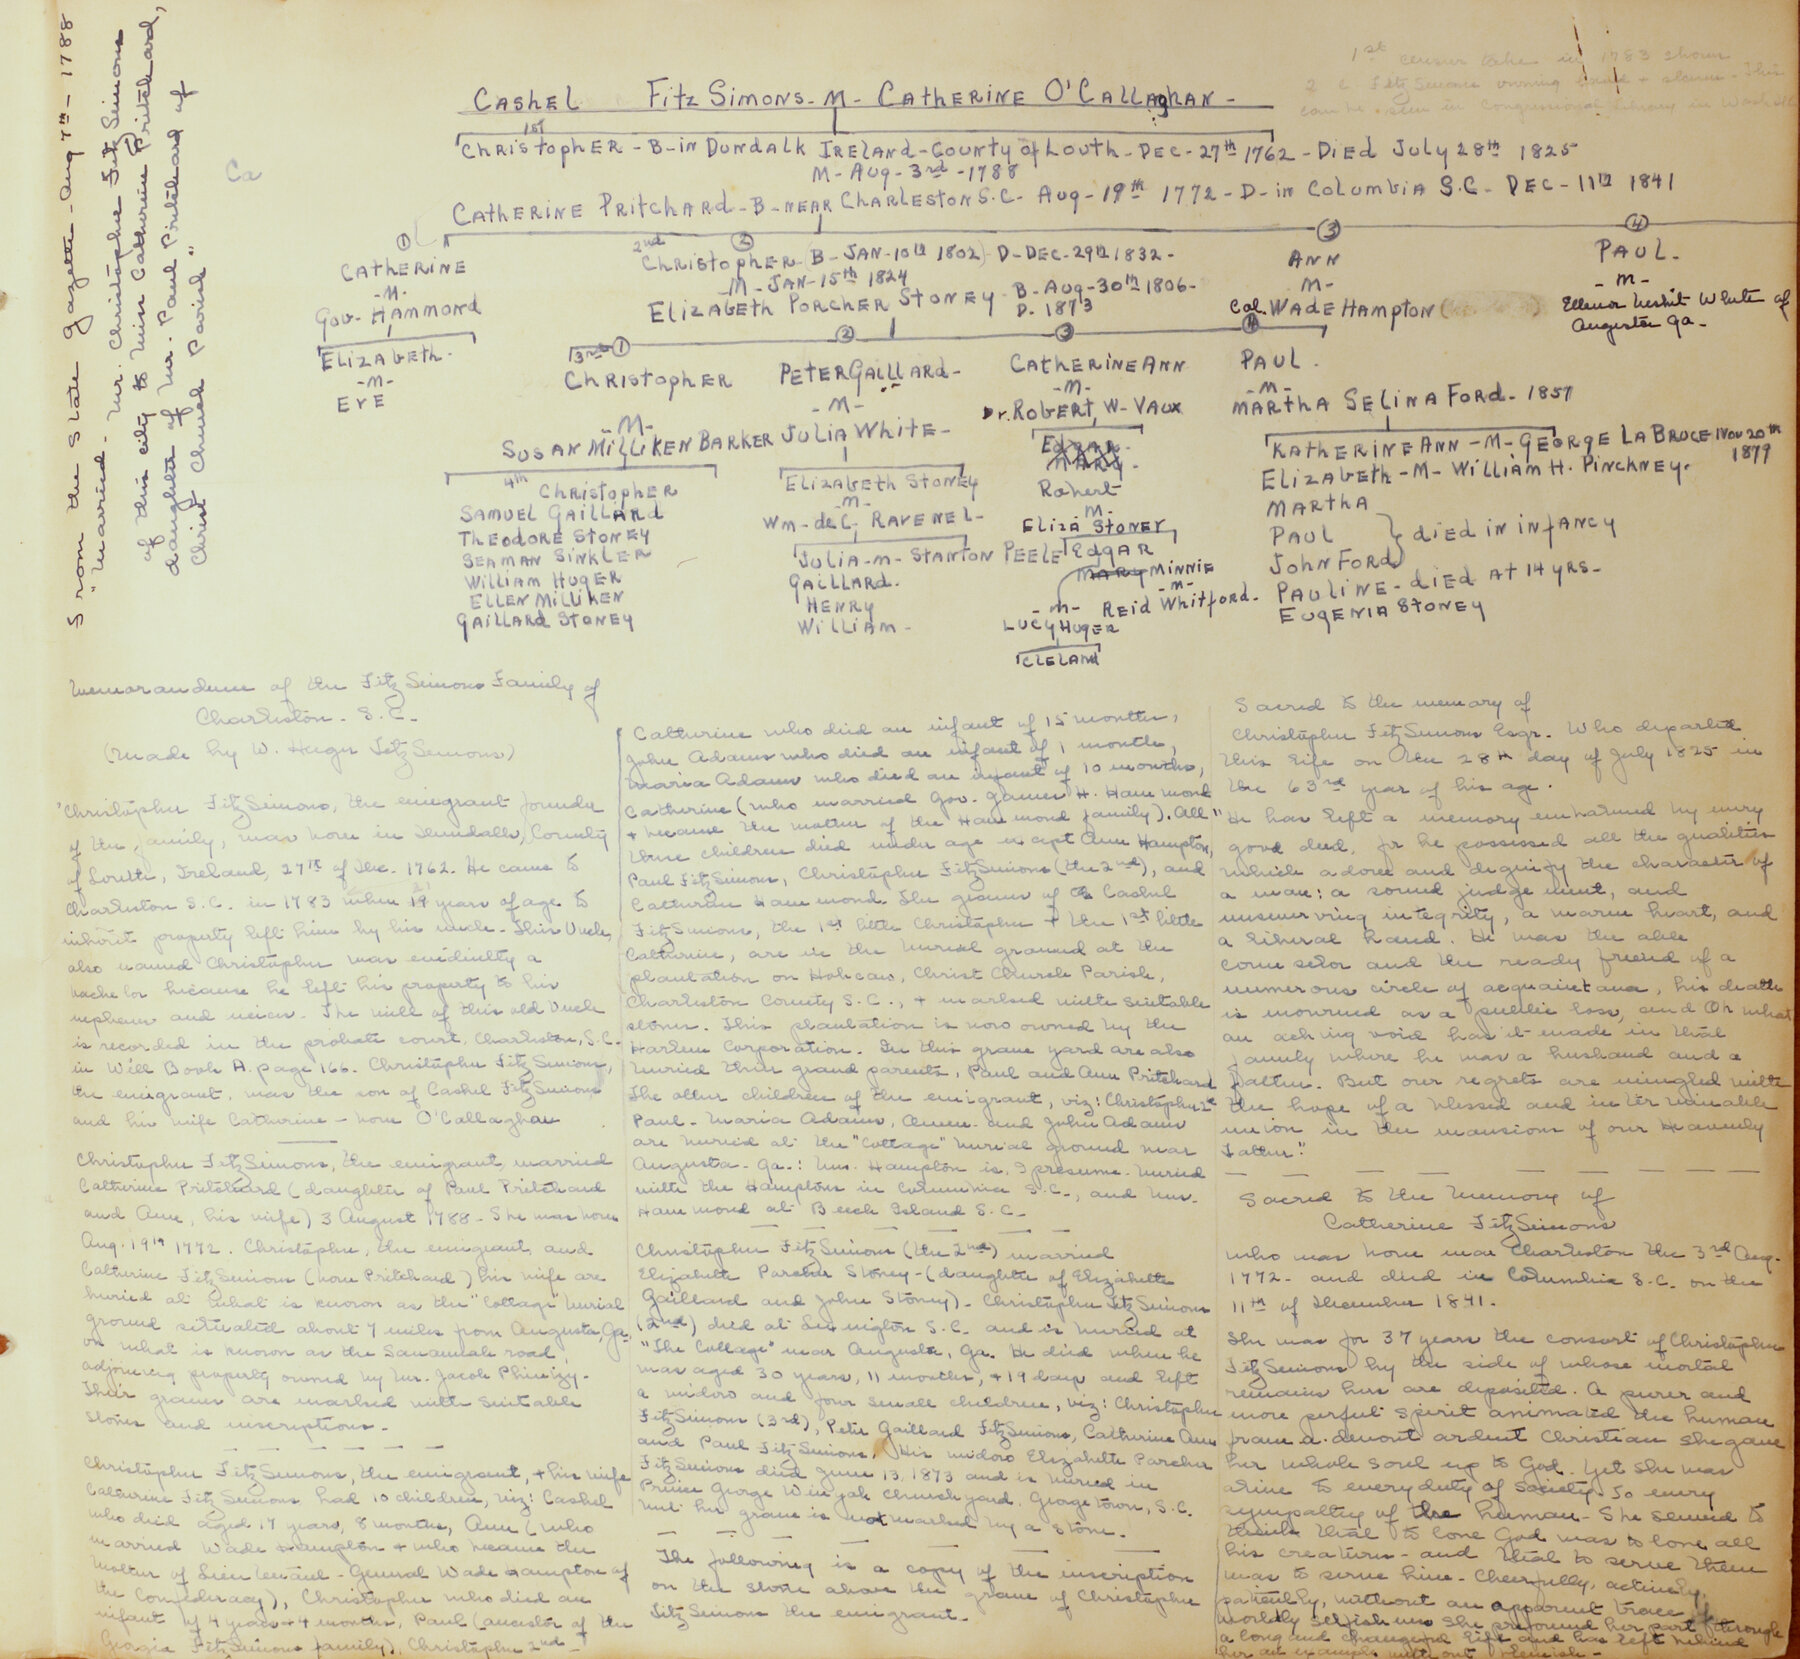 From the State Gazette - Aug 7th - 1788
"Married - Mr. Christopher Fitz Simons
of this city to Miss Catherine Pritchard,
daughter of Mr. Paul Pritchard of
Christ Church Parish"
Ca
1st census take in 1783 shows
2 C. Fitz Simons owning land + slaves - This
can be seen in Congressional Library in Wash
CASHEL FITZ SIMONS - M - CATHERINE O'CALLAGHAN -
1st
CHRISTOPHER - B - IN DUNDALK IRELAND - COUNTY of LOUTH - DEC - 27th 1762 - DIED JULY 28th 1825
M - AUG - 3rd - 1788
CATHERINE PRITCHARD - B - NEAR CHARLESTON S.C. AUG - 19th 1772 - D - IN COLUMBIA S.C. DEC - 11th 1841
① ② ③ ④
CATHERINE
- M -
GOV - HAMMOND
ELIZABETH -
- M -
EVE
2nd
CHRISTOPHER (B - JAN - 10th 1802) D - DEC - 29th 1832 -
M - JAN - 15th 1824
ELIZABETH PORCHER STONEY B - AUG - 30th 1806 -
D. 1873
ANN
M -
Col. WADE HAMPTON (
PAUL -
- M -
Ellenor Nesbit White of
Augusta Ga -
3rd ① ② ③ ④
CHRISTOPHER
- M -
SUSAN MILLIKEN BARKER
4th CHRISTOPHER
SAMUEL GAILLARD
THEODORE STONEY
SEAMAN SINKLER
WILLIAM HUGER
ELLEN MILLIKEN
GAILLARD STONEY
PETER GAILLARD -
- M -
JULIA WHITE -
ELIZABETH STONEY
M -
WM - de C. RAVENEL -
JULIA - M - STANTON PEELE
GAILLARD.
HENRY
WILLIAM -
CATHERINE ANN
- M -
Dr. ROBERT W - VAUX
EDGAR -
MARY -
Robert
M -
ELIZA STONEY
EDGAR
MARY MINNIE
- M -
REID WHITFORD -
- M -
LUCY HUGER
CLELAND
PAUL .
- M -
MARTHA SELINA FORD - 1857
KATHERINE ANN - M - GEORGE LA BRUCE NOV 20th
1879
ELIZABETH - M - WILLIAM H. PINCKNEY.
MARTHA
PAUL } DIED IN INFANCY
JOHN FORD
PAULINE - DIED AT 14 YRS -
EUGENIA STONEY
Memorandum of the Fitz Simons Family of
Charleston - S.C.
(Made by W. Huger Fitz Simons)
"Christopher Fitz Simons, the emigrant founder
of the family, was born in Dundalk, County
of Louth, Ireland, 27th of Dec. 1762. He came to
Charleston S.C. in 1783 when years of age to
inherit property left him by his uncle. This Uncle,
also named Christopher was evidently a
bachelor because he left his property to his
nephews and nieces. The will of this old Uncle
is recorded in the probate court, Charleston, S.C.
in Will Book A. page 166. Christopher Fitz Simons,
the emigrant, was the son of Cashel Fitz Simons
and his wife Catherine - born O'Callaghan
Christopher Fitz Simons, the emigrant, married
Catherine Pritchard (daughter of Paul Pritchard
and Ann, his wife) 3 August 1788 - She was born
Aug. 19th 1772. Christopher, the emigrant, and
Catherine Fitz Simons (born Pritchard) his wife are
buried at what is known as the "Cottage burial
ground situated about 7 miles from Augusta, Ga,
on what is known as the Savannah road,
adjoining property owned by Mr. Jacob Phinizy -
Their graves are marked with suitable
stones and inscriptions.
Christopher Fitz Simons, the emigrant, + his wife
Catherine Fitz Simons, had 10 children, viz: Cashel
who died aged 17 years, 8 months, Ann (who
married Wade Hampton + who became the
mother of Lieutenant - General Wade Hampton of
the Confederacy), Christopher who died an
infant of 4 years + 4 months, Paul (ancestor of the
Georgia Fitz Simons family), Christopher 2nd -
Catherine who died an infant of 15 months,
John Adams who died an infant of 1 month,
Maria Adams who died an infant of 10 months,
Catherine (who married Gov. James H. Hammond
+ became the mother of the Hammond family). All
these children died under age except Ann Hampton,
Paul Fitz Simons, Christopher Fitz Simons (the 2nd), and
Catherine Hammond. The graves of Cashel
Fitz Simons, the 1st little Christopher + the 1st little
Catherine, are in the burial ground at the
plantation on Hobcaw, Christ Church Parish,
Charleston County S.C., + marked with suitable
stones. This plantation is now owned by the
Harlem Corporation. In this grave yard are also
buried their grand parents, Paul and Ann Pritchard
The other children of the emigrant, viz: Christopher 2nd
Paul - Maria Adams, and John Adams
are buried at the "Cottage" burial ground near
Augusta - Ga.: Mrs. Hampton is, I presume - buried
with the Hamptons in Columbia S.C., and Mrs.
Hammond at Beech Island S.C.
Christopher Fitz Simons (the 2nd) married
Elizabeth Porcher Stoney - (daughter of Elizabeth
Gaillard and John Stoney) - Christopher Fitz Simons
(2nd) died at Lexington S.C. and is buried at
"The Cottage" near Augusta, Ga. He died when he
was aged 30 years, 11 months, + 19 days and left
a widow and four small children, viz: Christopher
Fitz Simons (3rd), Peter Gaillard Fitz Simons, Catherine Ann
and Paul Fitz Simons. His widow Elizabeth Porcher
Fitz Simons died June 13, 1873 and is buried in
Prince George Winyah Church yard, Georgetown, S.C.
but her grave is not marked by a stone.
The following is a copy of the inscription
on the stone above the grave of Christopher
Fitz Simons the emigrant.
Sacred to the memory of
Christopher Fitz Simons Esqr. Who departed
this life on the 28th day of July 1825 in
the 63rd year of his age.
"He has left a memory embalmed by every
good deed, for he possessed all the qualities
which adorn and dignify the character of
a man: a sound judgement, and
unswerving integrity, a warm heart, and
a liberal hand. He was the able
counselor and the ready friend of a
numerous circle of acquaintance, his death
is mourned as a public loss, and Oh what
an aching void has it made in that
family where he was a husband and a
father. But our regrets are mingled with
the hope of a blessed and interminable
union in the mansions of our Heavenly
Father."
Sacred to the Memory of
Catherine Fitz Simons
who was born near Charleston the 3rd Aug -
1772 - and died in Columbia S.C. on the
11th of December 1841.
She was for 37 years the consort of Christopher
Fitz Simons by the side of whose mortal
remains hers are deposited. A purer and
more perfect spirit animated the human
frame a devout ardent Christian she gave
her whole soul up to God. Yet she was
alive to every duty of society, to every
sympathy of the human - She seemed to
think that to love God was to love all
his creatures - and that to serve them
was to serve him - Cheerfully, actively,
patiently, without an apparent trace of
worldly selfishness she performed her part through
a long and life and has left behind
her an example without blemish -